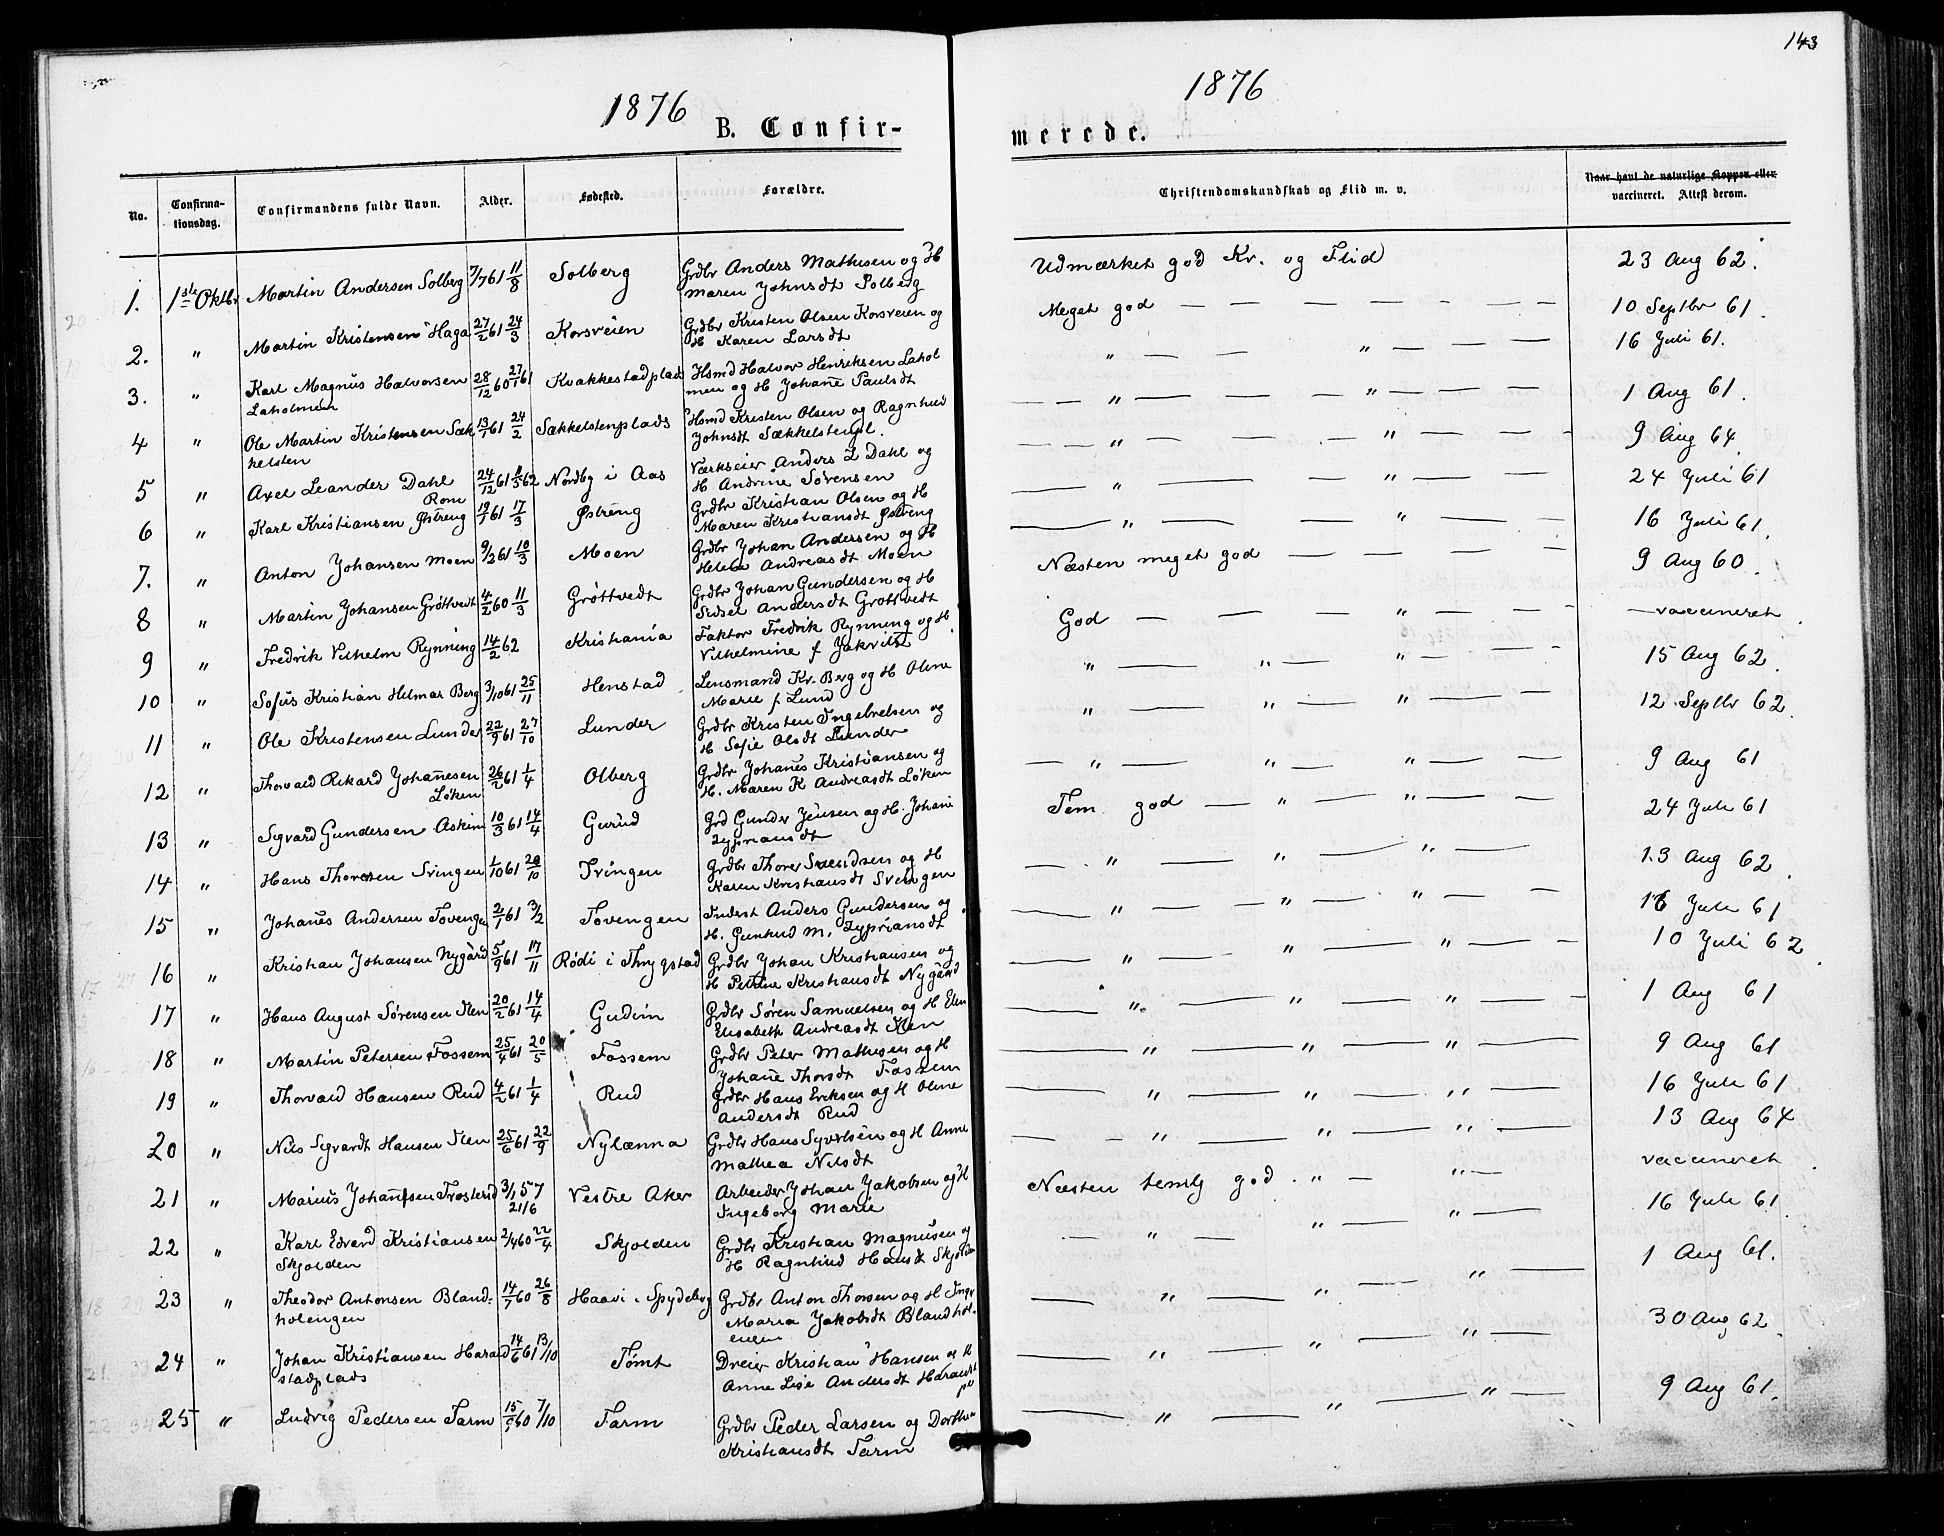 143
1876
1876
B. Confir-
merede.
No.
Confirma-
tionsdag.
Confirmandens fulde Navn.
Alder.
Fødested.
Forældre.
Christendomskundskab og Flid m. v.
Naar havt de naturlige Kopper eller
vaccineret. Attest derom.
1. 1ste Oktbr Martin Andersen Solberg 7/7 61 11/8 Solberg Grdbr Anders Mathisen og H Udmærket god Kr. og Flid 23 Aug 62.
Maren Johnsdt Solberg
2. " Martin Kristensen Haga 27/2 61 24/3 Korsveien Grdbr Kristen Olsen Korsveien og Meget god — — — — — — 10 Septbr 61.
H Karen Larsdt
3. " Karl Magnus Halvorsen 28/12 60 27/1 61 Kvakkestadplads Hsmd Halvor Henriksen Lahol " — — " — — — 16 Juli 61.
Laholmen men og H Johane Paulsdt
4 " Ole Martin Kristensen Sæk 13/1 61 24/2 Sækkelstenplads Hsmd Kristen Olsen og Ragnhild — — " — — — " — — — 1 Aug 61.
kelsten Johnsdt Sækkelstenpl.
5 " Axel Leander Dahl 24/12 61 62 Nordby i Aas Værkseier Anders L Dahl og — — " — — — " — — — 9 Aug 64.
H Andrine Sørensen
6 " Karl Kristiansen Østreng 19/1 61 17/3 Østreng Grdbr Kristian Olsen og H — " — — " — — 24 Juli 61
Maren Kristiansdt Østreng
7. " Anton Johansen Moen 9/2 61 10/3 Moen Grdbr Johan Andersen og H — " — — " — — 16 Juli 61.
Helene Andreasdt Moen
8 " Martin Johansen Grøttvedt 4/2 60 11/3 Grøttvedt Grdbr Johan Gundersen og H Næsten meget god — — — — — — 9 Aug 60.
Sidsel Andersdt Grøttvedt
9 " Fredrik Vilhelm Rynning 14/2 62 Kristiania Faktor Fredrik Rynning og H. God — — — " — — — — vaccineret.
Vilhelmine f
10 " Sofus Kristian Helmar Berg 3/10 61 25/11 Henstad Lensmand Kr. Berg og H Oline " — " — " — — — 15 Aug 62.
Marie f Lund
11 " Ole Kristensen Lunder 22/9 61 27/10 Lunder Grdbr Kristen Ingebretsen og " — " — " — — — 12 Septbr 62.
H Sofie Olsdt Lunder
12 " Thorvald Rikard Johanesen 26/2 61 1/4 Olberg Grdbr Johanes Kristiansen og — " — " — " — — 9 Aug 61
Løken H. Maren K Andreasdt Løken
13 " Sigvard Gundersen Askim 10/3 61 14/4 Gurud Grd Gunder Jensen og H. Johane Tem god — " — " — — 24 Juli 61
Zypriansdt
14 " Hans Thoresen Svingen 1/10 61 20/10 Svingen Grdbr Thorer Svendsen og H — " — " — " — 13 Aug 62.
Karen Kristiansdt Svingen
15 " Johanes Andersen Tovengen 2/1 61 3/2 Tovengen Inderst Anders Gundersen og — " — " — " — — 16 Juli 61
H. Gunhild M. Zypriansdt
16 " Kristian Johansen Nygård 5/9 61 17/11 Rødi i Thrygstad Grdbr Johan Kristiansen og — " — " — " — — 10 Juli 62.
H Petrine Kristiansdt Nygård
17 " Hans August Sørensen Ilen 20/2 61 14/4 Gudim Grdbr Søren Samuelsen og H Elen — " — " — " — — 1 Aug 61
Elisabeth Andreasdt Ilen
18 " Martin Petersen Fossem 25/4 61 20/5 Fossem Grdbr Peter Mathisen og H — " — " — " — 9 Aug 61
Johane Thorsdt Fossem
19 " Thorvald Hansen Rud 4/2 61 1/4 Rud Grdbr Hans Eriksen og H Oline — " — " — " — 16 Juli 61
Andersdt Rud
20 " Nils Sigvardt Hansen Ilen 25/6 61 22/9 Nylænna Grdbr Hans Syvertsen og H Anne — — " — " — " — 13 Aug 64
Mathea Nilsdt
21 " Marius Johansen Trosterud 3/1 57 Vestre Aker Arbeider Johan Jakobsen og H Næsten temlig god . " — " — vaccineret.
21/6 Ingeborg Marie
22 " Karl Edvard Kristiansen 2/4 60 22/4 Skjolden Grdbr Kristian Magnusen og — " — " — " — 16 Juli 61.
Skjolden H Ragnhild Hansdt Skjolden
23 " Theodor Antonsen Bland- 14/7 60 26/8 Haavi i Spydeberg Grdbr Anton Thorsen og H Ing — " — " " — 1 Aug 61.
holengen Maria Jakobsdt Blandhol-
engen
24 " Johan Kristiansen Harald 14/6 61 13/10 Tømt Dreier Kristian Hansen og H — " — " — " — 30 Aug 62.
stadplads Anne Lise Andersdt
25 " Ludvig Pedersen Farm 15/ 60 7/10 Farm Grdbr Peder Larsen og Dorthe — " — " — " — 9 Aug 61.
Kristiansdt Farm